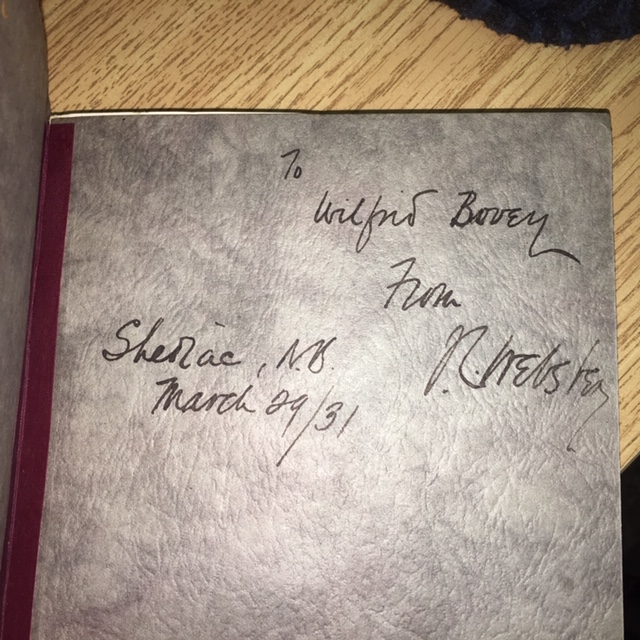 To
Wilfrid Bovey
From
J.C. Webster
Shediac, N.B.
March 29/31